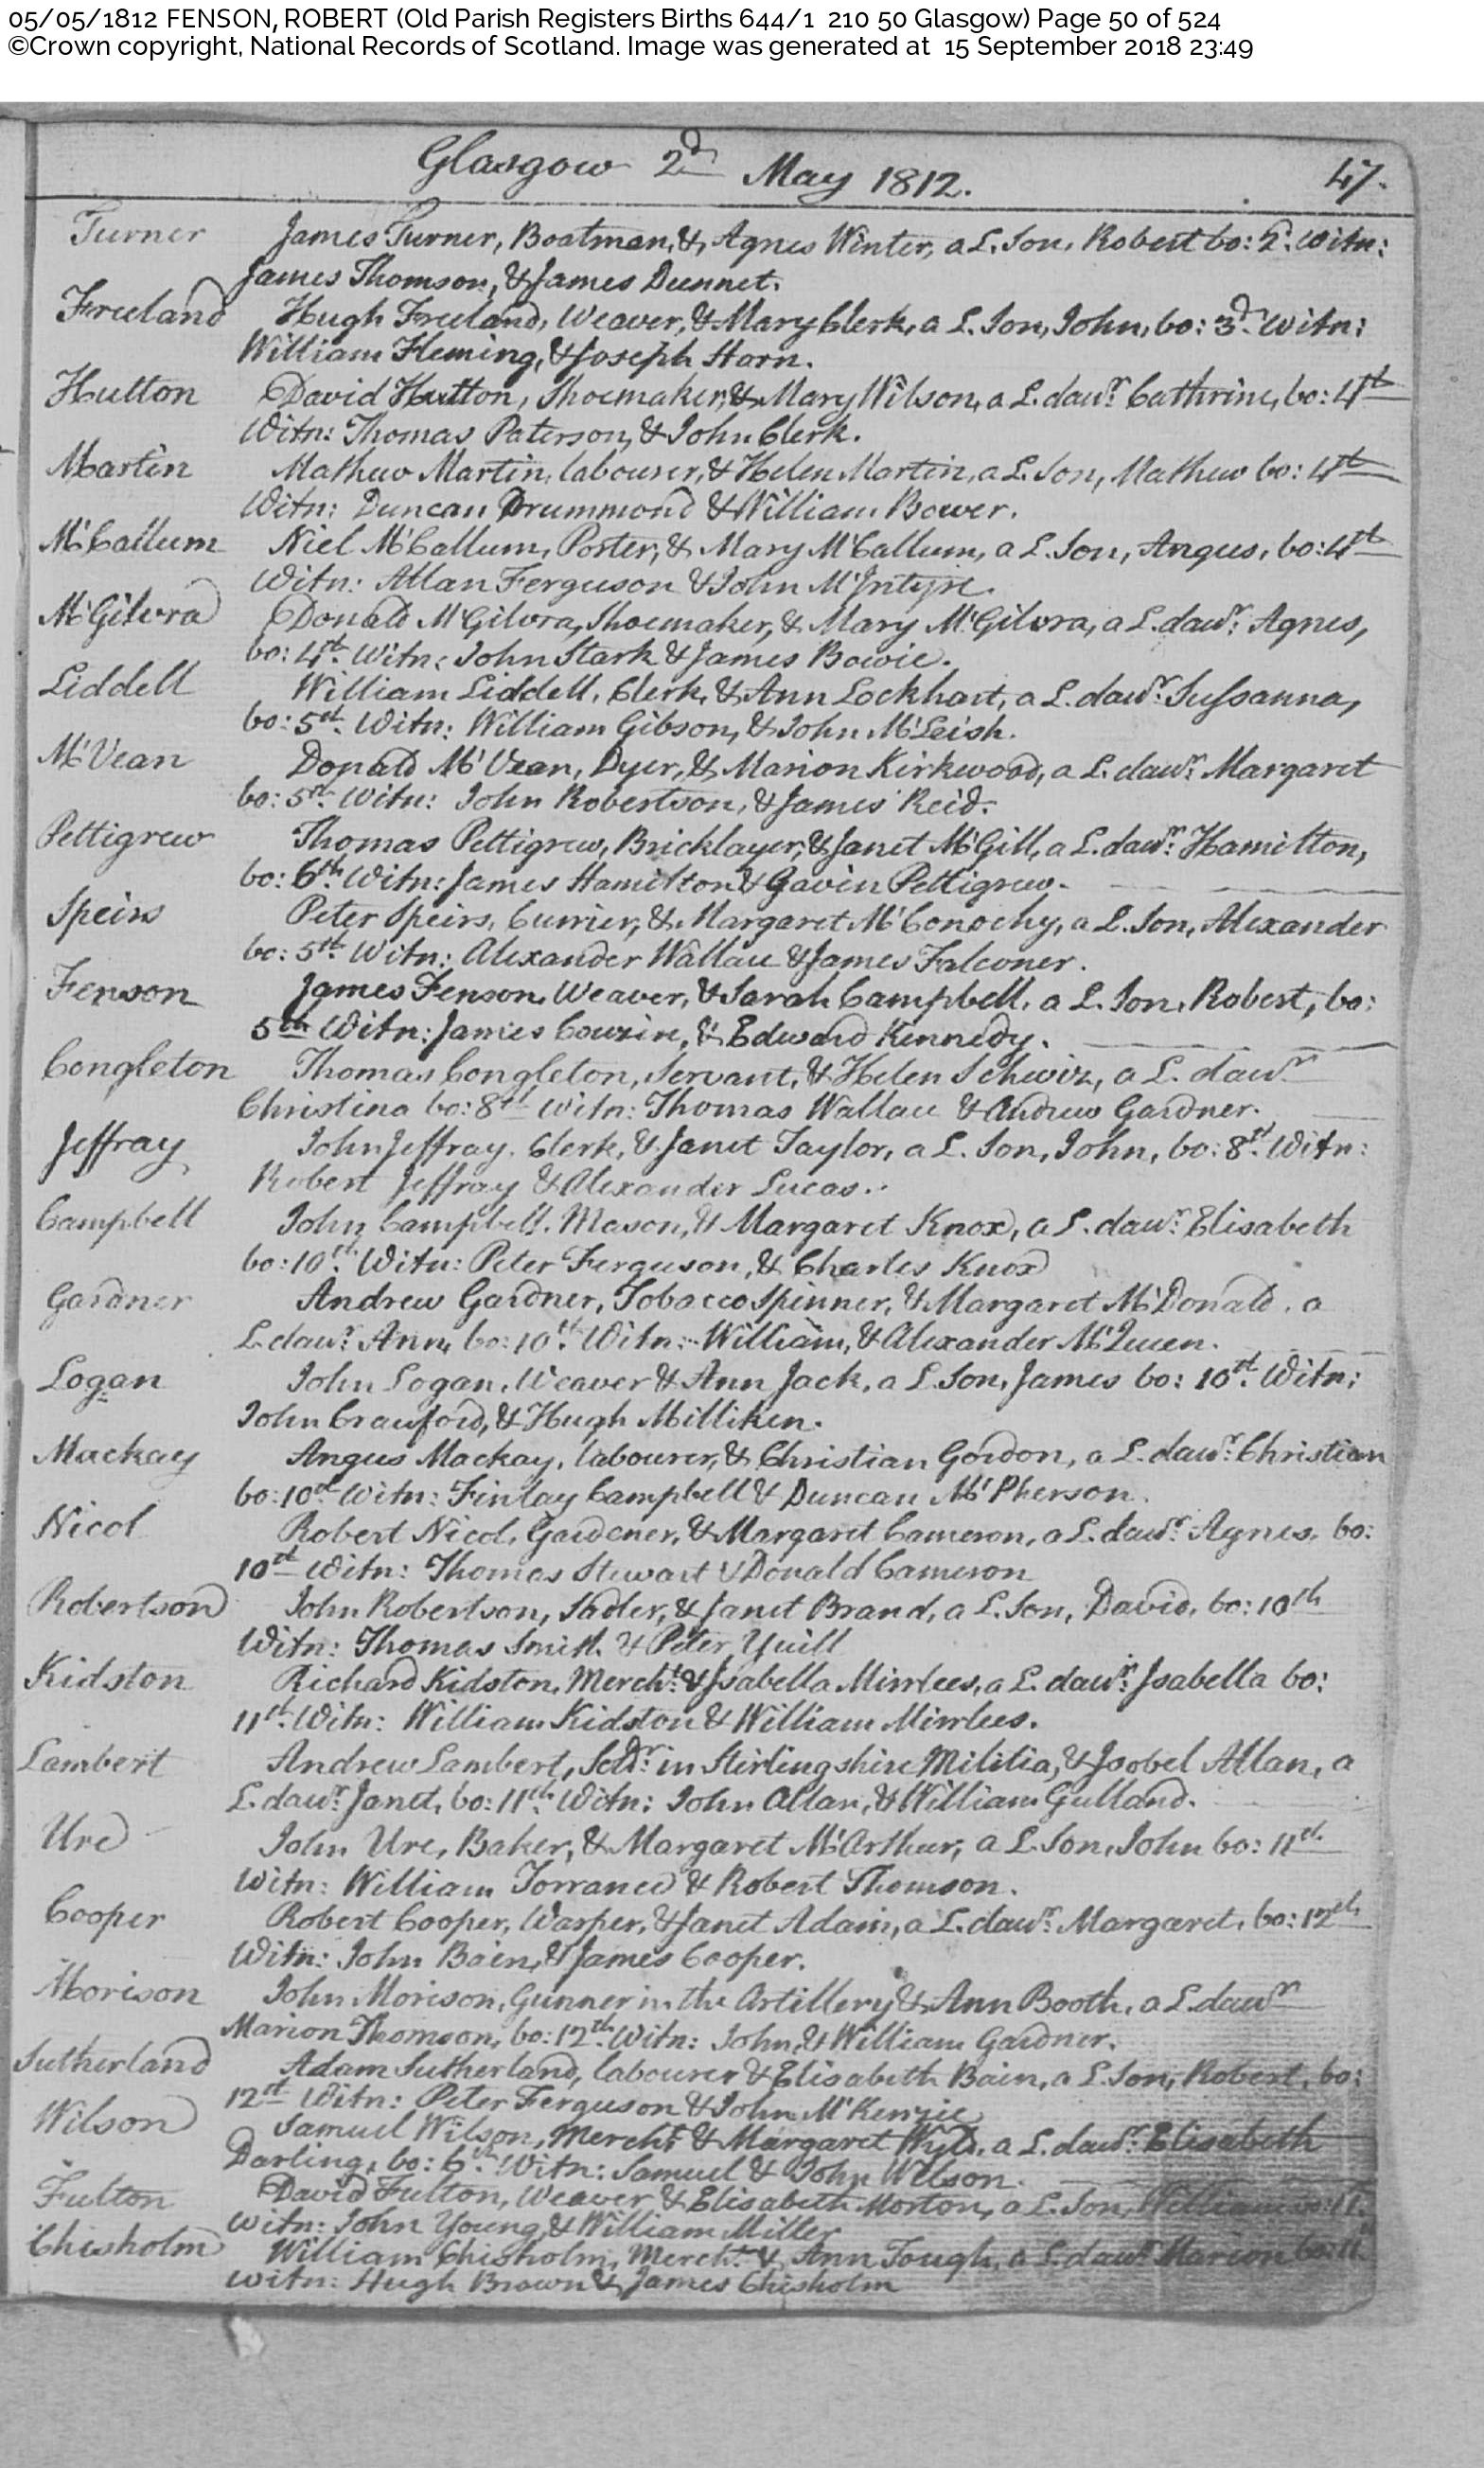 05/05/1812 FENSON, ROBERT (Old Parish Registers Births 644/1 210 50 Glasgow) Page 50 of 524
©Crown copyright, National Records of Scotland. Image was generated at 15 September 2018 23:49
Glasgow 2d May 1812. 47.
Turner James Turner, Boatman, &, Agnes Winter, a L. Son, Robert bo: 2d. Witn:
James Thomson, & James Dunnet.
Freeland Hugh Freeland, Weaver, & Mary Clerk, a L. Son, John, bo: 3d. Witn:
William Fleming, & Joseph Horn.
Hutton David Hutton, Shoemaker, & Mary Wilson, a L. dawr. Cathrine, bo: 4th
Witn: Thomas Paterson, & John Clerk.
Martin Mathew Martin, labourer, & Helen Martin, a L. Son, Mathew bo: 4th
Witn: Duncan Drummond & William Bower.
McCallum Niel McCallum, Porter, & Mary McCallum, a L. Son, Angus, bo: 4th
Witn: Allan Ferguson & John McIntyre.
McGilvra Donald McGilvra, Shoemaker, & Mary McGilvra, a L. dawr. Agnes,
bo: 4th. Witn: John Stark & James Bowie.
Liddell William Liddell, Clerk, & Ann Lockhart, a L. dawr. Sussanna,
bo: 5th. Witn: William Gibson, & John McLeish.
McVean Donald McVean, Dyer, & Marion Kirkwood, a L. dawr. Margaret
bo: 5th. Witn: John Robertson, & James Reid.
Pettigrew Thomas Pettigrew, Bricklayer, & Janet McGill, a L. dawr. Hamilton,
bo: 6th. Witn: James Hamilton & Gavin Pettigrew.
Speirs Peter Speirs, Currier, & Margaret McConochy, a L. Son, Alexander
bo: 5th. Witn: Alexander Wallace & James Falconer.
Fenson James Fenson, Weaver, & Sarah Campbell, a L. Son, Robert, bo:
5th Witn: James Couzin, & Edward Kennedy.
Congleton Thomas Congleton, Servant, & Helen Schwiz, a L. dawr
Christina bo: 8th Witn: Thomas Wallace & Andrew Gardner.
Jeffray John Jeffray, Clerk, & Janet Taylor, a L. Son, John, bo: 8th. Witn:
Robert Jeffray & Alexander Lucas.
Campbell John Campbell, Mason, & Margaret Knox, a L. dawr. Elisabeth
bo: 10th. Witn: Peter Ferguson, & Charles Knox
Gardner Andrew Gardner, Tobacco Spinner, & Margaret McDonald, a
L. dawr. Ann, bo: 10th. Witn: William, & Alexander McQueen.
Logan John Logan, Weaver & Ann Jack, a L. Son, James bo: 10th. Witn:
John Crawford, & Hugh Milliken.
Mackay Angus Mackay, labourer, & Christian Gordon, a L. dawr. Christian
bo: 10th Witn: Finlay Campbell & Duncan McPherson.
Nicol Robert Nicol, Gardener, & Margaret Cameron, a L. dawr. Agnes, bo:
10th Witn: Thomas Stewart & Donald Cameron
Robertson John Robertson, Sadler, & Janet Brand, a L. Son, David, bo: 10th
Witn: Thomas Smith & Peter Yuill
Kidston Richard Kidston, Mercht. & Isabella Mirrlees, a L. dawr. Isabella bo:
11th. Witn: William Kidston & William Mirrlees.
Lambert Andrew Lambert, Soldr. in Stirlingshire Militia, & Isobel Allan, a
L. dawr. Janet, bo: 11th. Witn: John Allan, & William Gulland.
Ure John Ure, Baker, & Margaret McArthur, a L. Son, John bo: 11th
Witn: William Torrance & Robert Thomson.
Cooper Robert Cooper, Warper, & Janet Adam, a L. dawr. Margaret, bo: 12th
Witn: John Bain, & James Cooper.
Morison John Morison, Gunner in the Artillery & Ann Booth, a L. dawr
Marion Thomson, bo: 12th Witn: John, & William Gardner.
Sutherland Adam Sutherland, labourer & Elisabeth Bain, a L. Son, Robert, bo:
12th Witn: Peter Ferguson & John McKenzie
Wilson Samuel Wilson, Mercht. & Margaret Wyld, a L. dawr. Elisabeth
Darling, bo: 6th. Witn: Samuel & John Wilson.
Fulton David Fulton, Weaver & Elisabeth Morton, a L. Son, William bo: 11.
Witn: John Young, & William Miller
Chisholm William Chisholm, Mercht. & Ann Tough, a L. dawr. Marion bo: 11.
Witn: Hugh Brown & James Chisholm